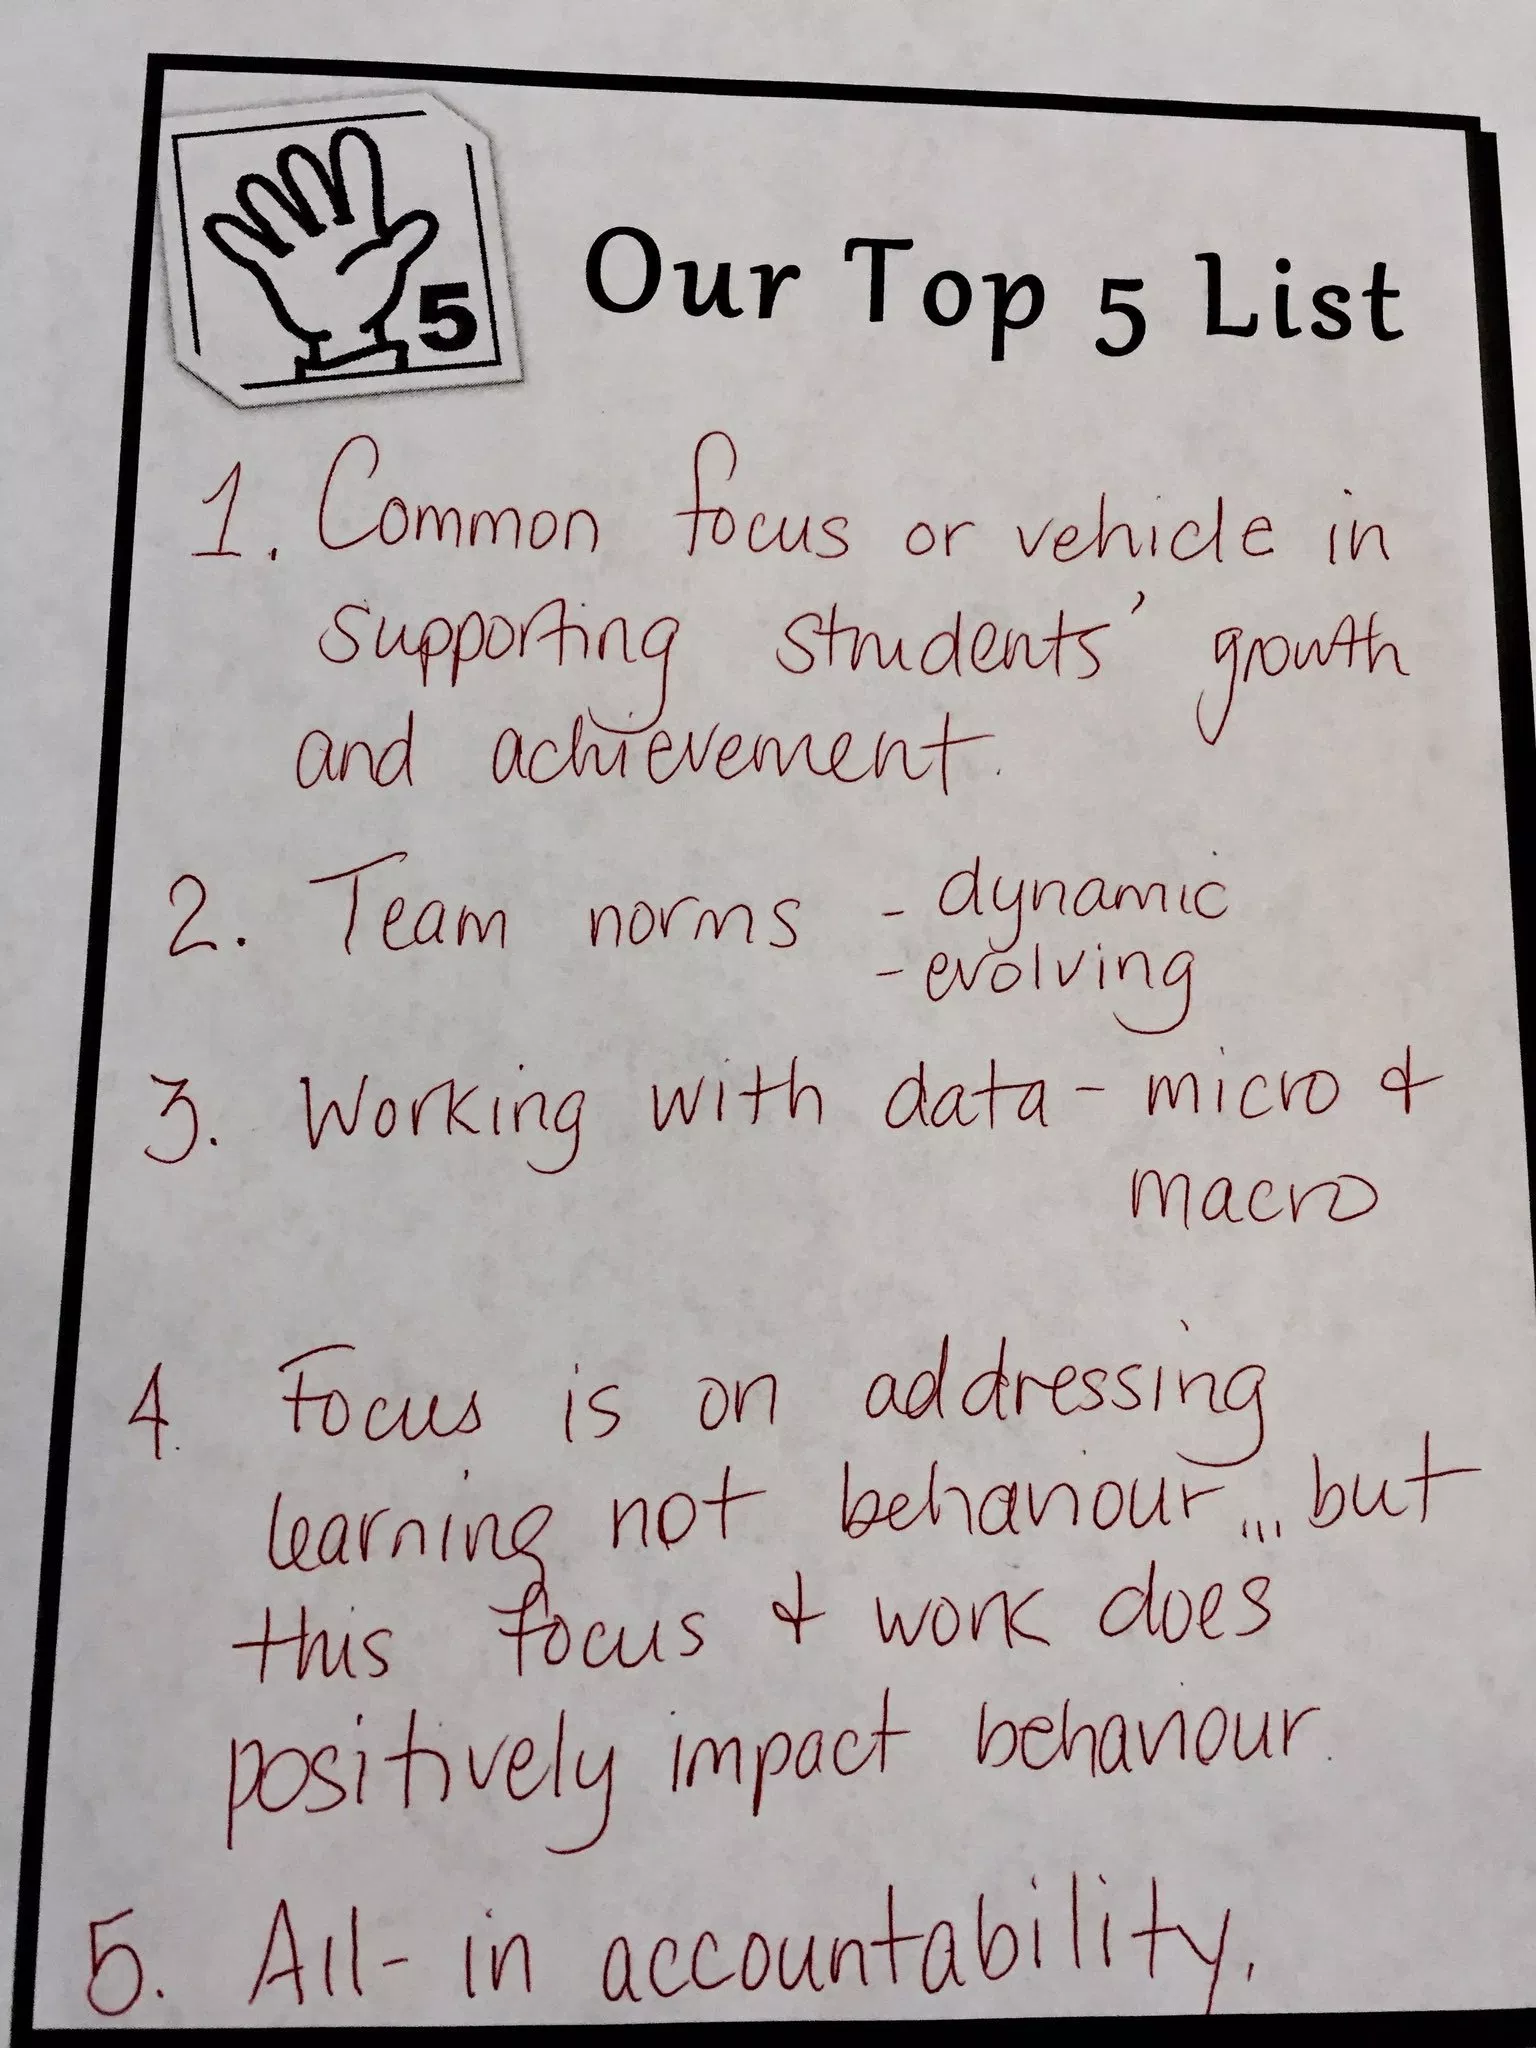 5
Our Top 5 List
1. Common focus or vehicle in
supporting students' growth
and achievement.
2. Team norms - dynamic
- evolving
3. Working with data - micro &
macro
4. Focus is on addressing
learning not behaviour... but
this focus & work does
positively impact behaviour.
5. All-in accountability.